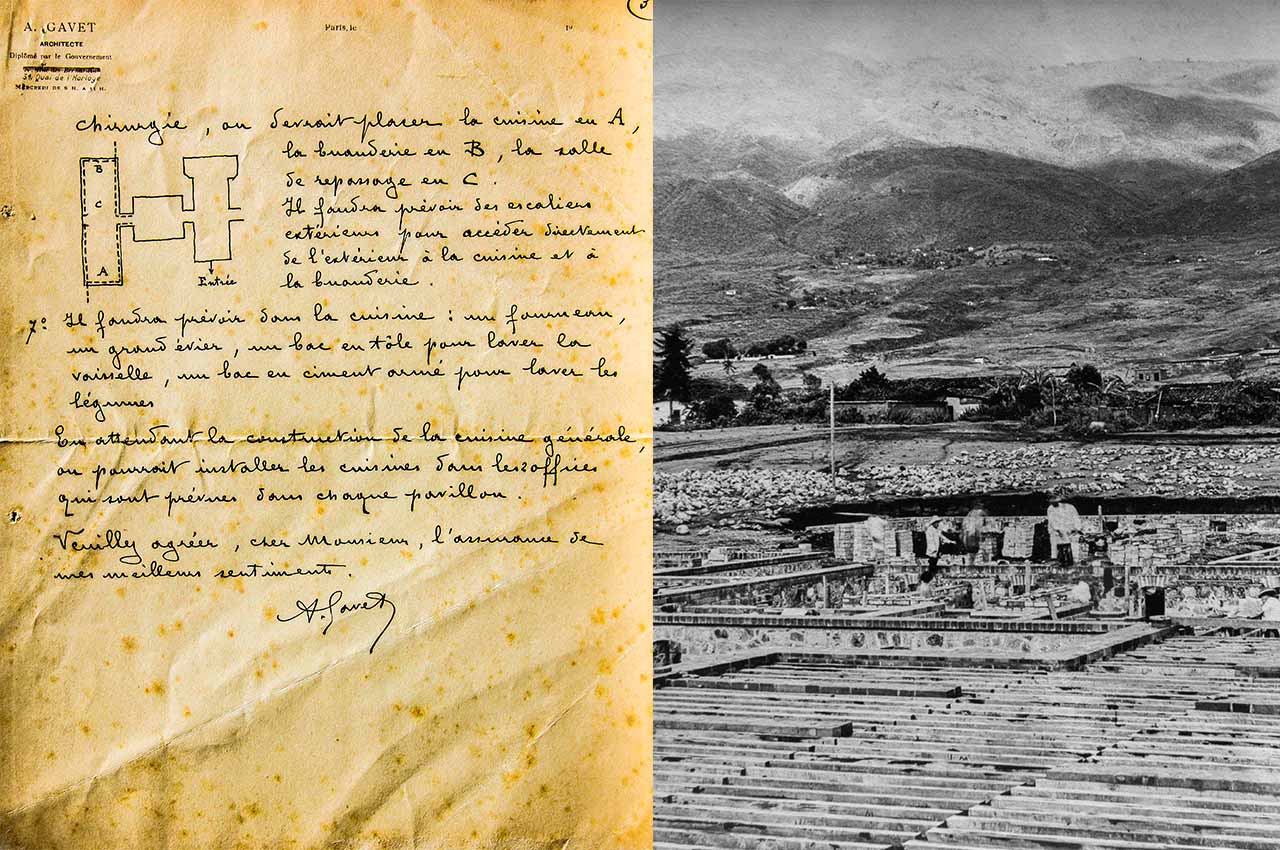 A. GAVET
ARCHITECTE
Diplômé par le Gouvernement
51, Quai de l'Horloge
MERCREDI DE 8 H. A 11 H.
Paris, le
19
chirurgie, on devrait placer la cuisine en A,
la buanderie en B, la salle
de repassage en C.
Il faudra prévoir des escaliers
extérieurs pour accéder directement
de l'extérieur à la cuisine et à
la buanderie.
B
C
A
Entrée
7° Il faudra prévoir dans la cuisine : un fourneau,
un grand évier, un bac en tôle pour laver la
vaisselle, un bac en ciment armé pour laver les
légumes
En attendant la construction de la cuisine générale,
on pourrait installer les cuisines dans les offices
qui sont prévues dans chaque pavillon.
Veuillez agréer, cher Monsieur, l'assurance de
mes meilleurs sentiments.
A. Gavet